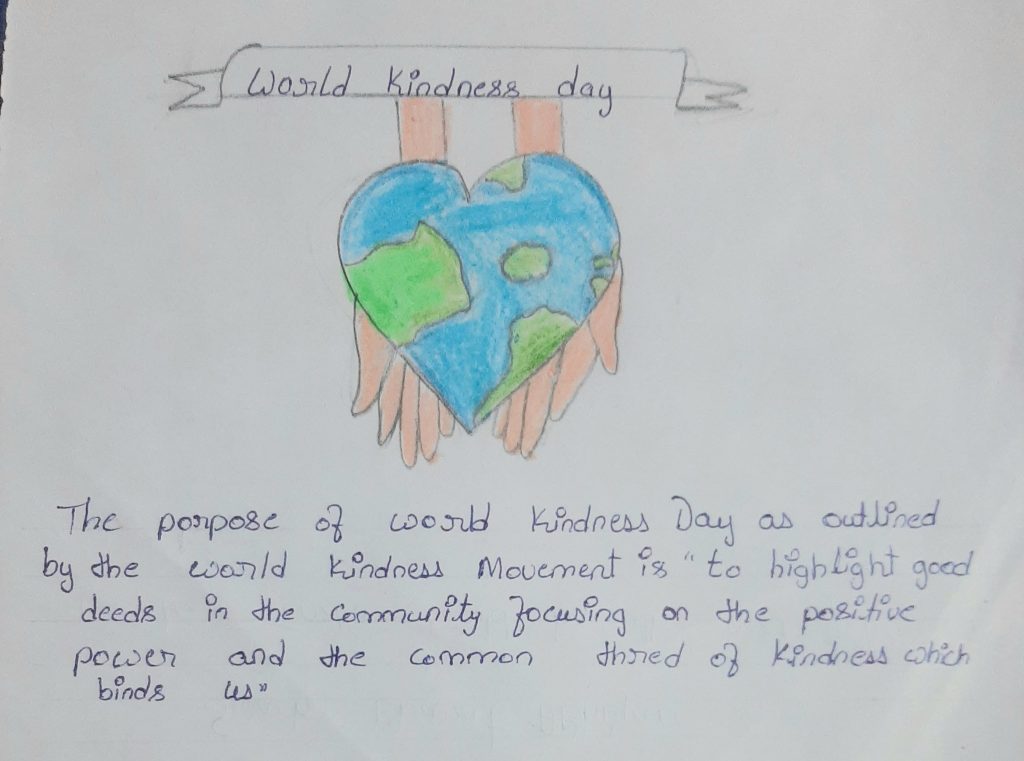 World Kindness day
The porpose of world Kindness Day as outlined
by the world Kindness Movement is "to highlight good
deeds in the community focusing on the positive
power and the common thred of Kindness which
binds us"